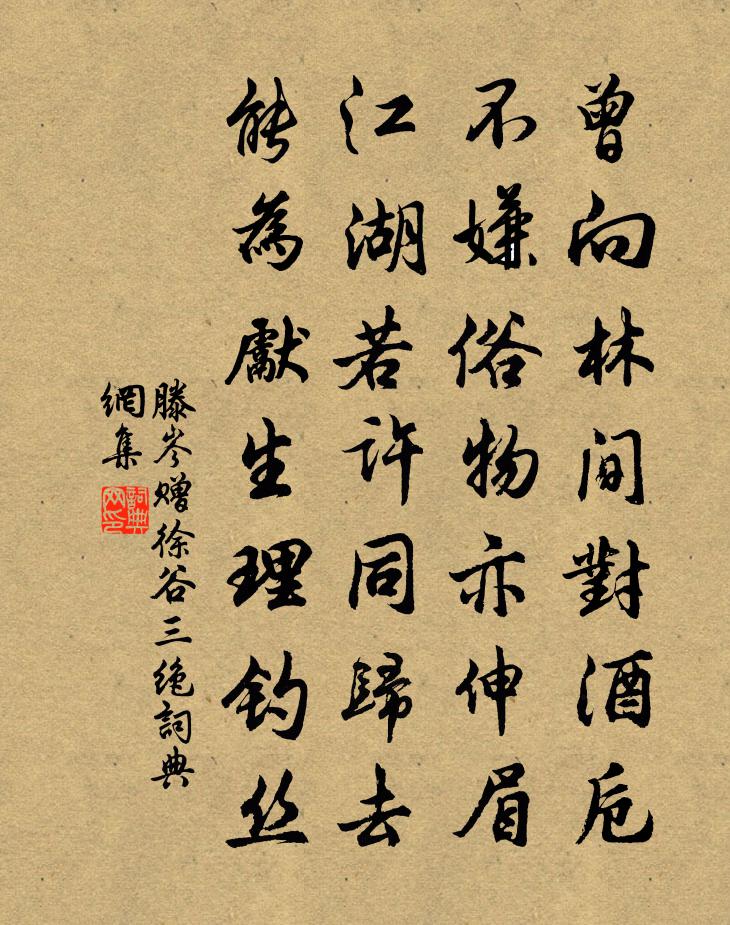 曾向林間對酒卮
不嫌俗物亦伸眉
江湖若許同歸去
能為獻生理釣丝
滕岑赠徐谷三绝詞典
網集
詞典網印